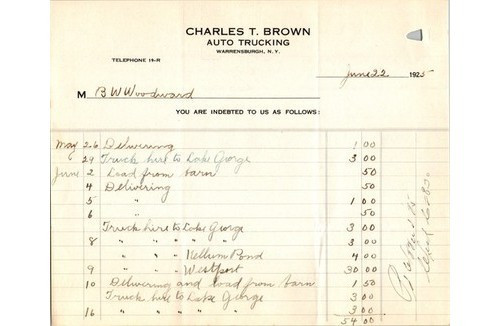 CHARLES T. BROWN
AUTO TRUCKING
WARRENSBURGH, N.Y.
TELEPHONE 19-R
June 22 1925
M B W Woodward
YOU ARE INDEBTED TO US AS FOLLOWS:
May 26 Delivering 1 00
29 Truck hire to Lake George 3 00
June 2 Load from barn 50
4 Delivering 50
5 " 1 00
6 " 50
Truck hire to Lake George 3 00
8 " " " " " 3 00
" " " Kellum Pond 4 00
9 " " Westport 30 00
10 Delivering and load from barn 1 50
Truck hire to Lake George 3 00
16 " " " " " 3 00
54 00